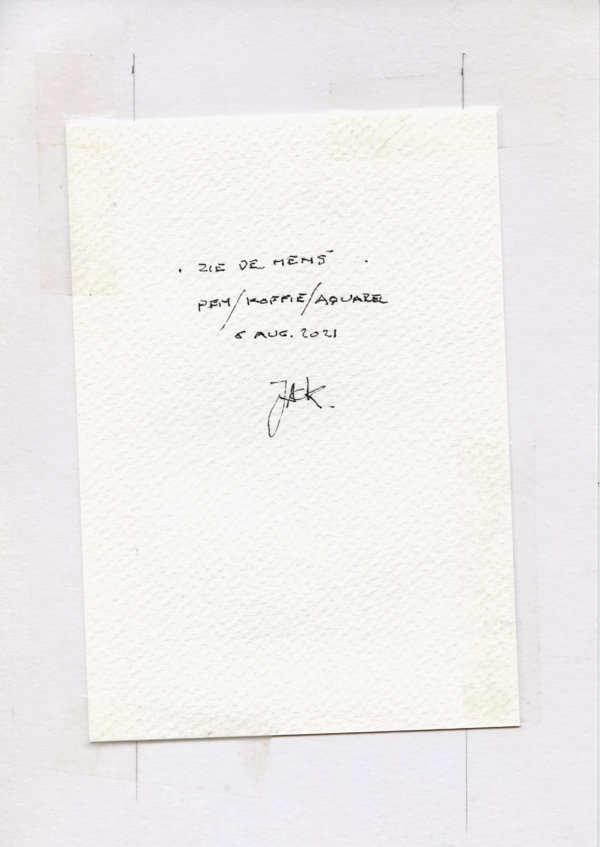 . ZIE DE MENS .
PEN/KOFFIE/AQUAREL
6 AUG. 2021
JAK.